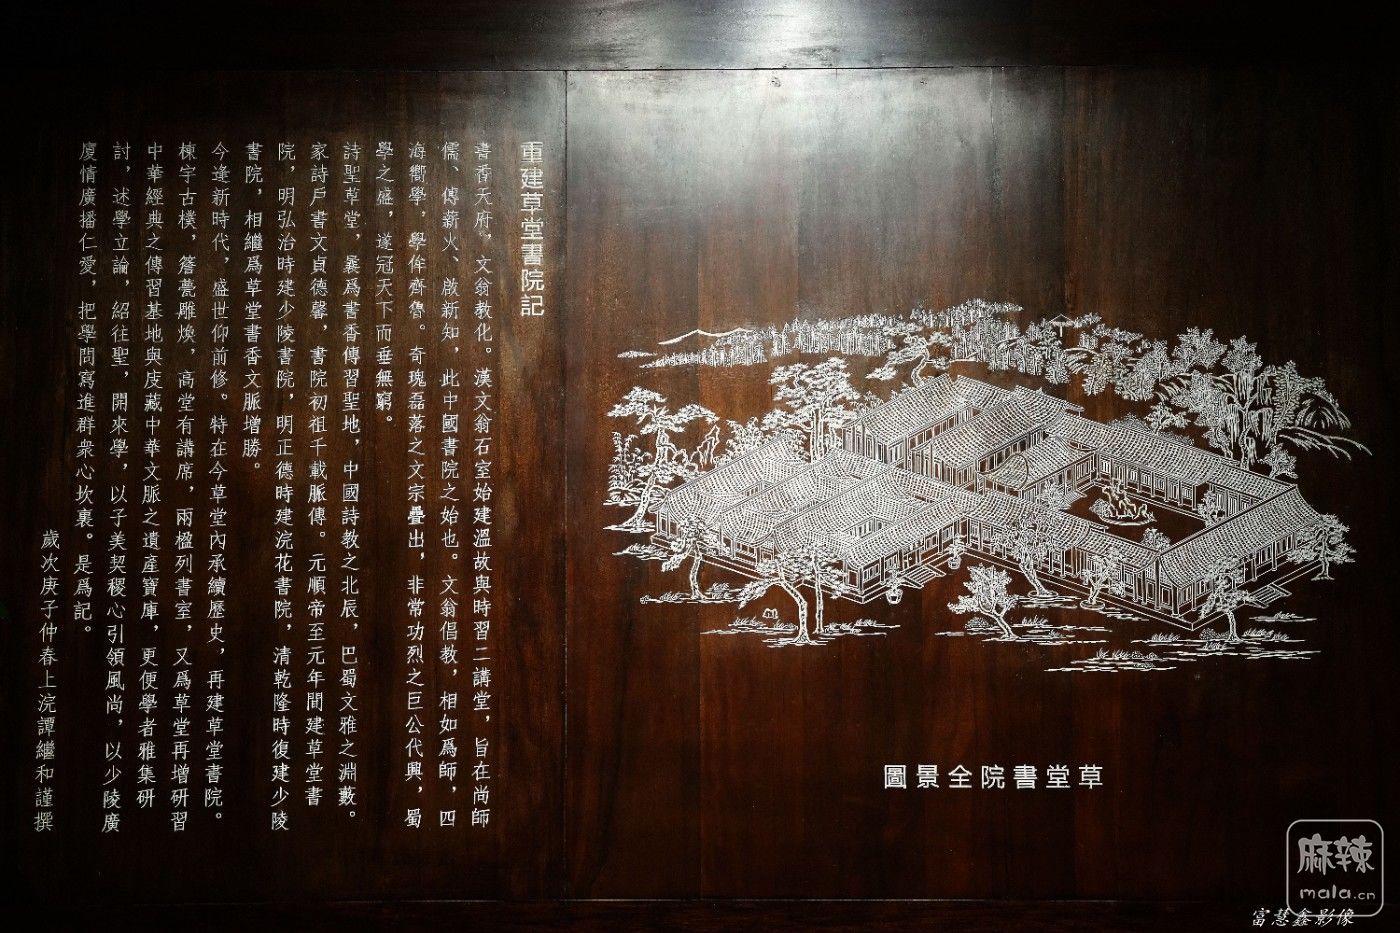 重建草堂書院記
書香天府，文翁教化。漢文翁石室始建溫故與時習二講堂，旨在尚師
儒、傳薪火、啟新知，此中國書院之始也。文翁倡教，相如爲師，四
海嚮學，學侔齊魯。奇瑰磊落之文宗疊出，非常功烈之巨公代興，蜀
學之盛，遂冠天下而垂無窮。
詩聖草堂，曩爲書香傳習聖地，中國詩教之北辰，巴蜀文雅之淵藪。
家詩戶書文貞德馨，書院初祖千載脈傳。元順帝至元年間建草堂書
院，明弘治時建少陵書院，明正德時建浣花書院，清乾隆時復建少陵
書院，相繼爲草堂書香文脈增勝。
今逢新時代，盛世仰前修。特在今草堂內承續歷史，再建草堂書院。
棟宇古樸，簷甍雕煥，高堂有講席，兩楹列書室，又爲草堂再增研習
中華經典之傳習基地與庋藏中華文脈之遺產寶庫，更便學者雅集研
討，述學立論，紹往聖，開來學，以子美契稷心引領風尚，以少陵廣
廈情廣播仁愛，把學問寫進群衆心坎裏。是爲記。
歲次庚子仲春上浣譚繼和謹撰
圖景全院書堂草
麻辣
mala.cn
富慧鑫影像